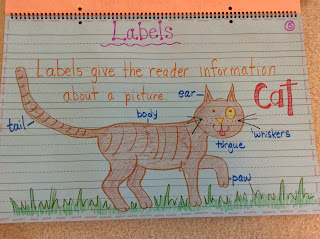 5
Labels
Labels give the reader information
about a picture.
ear
Cat
body
tail
whiskers
tongue
paw